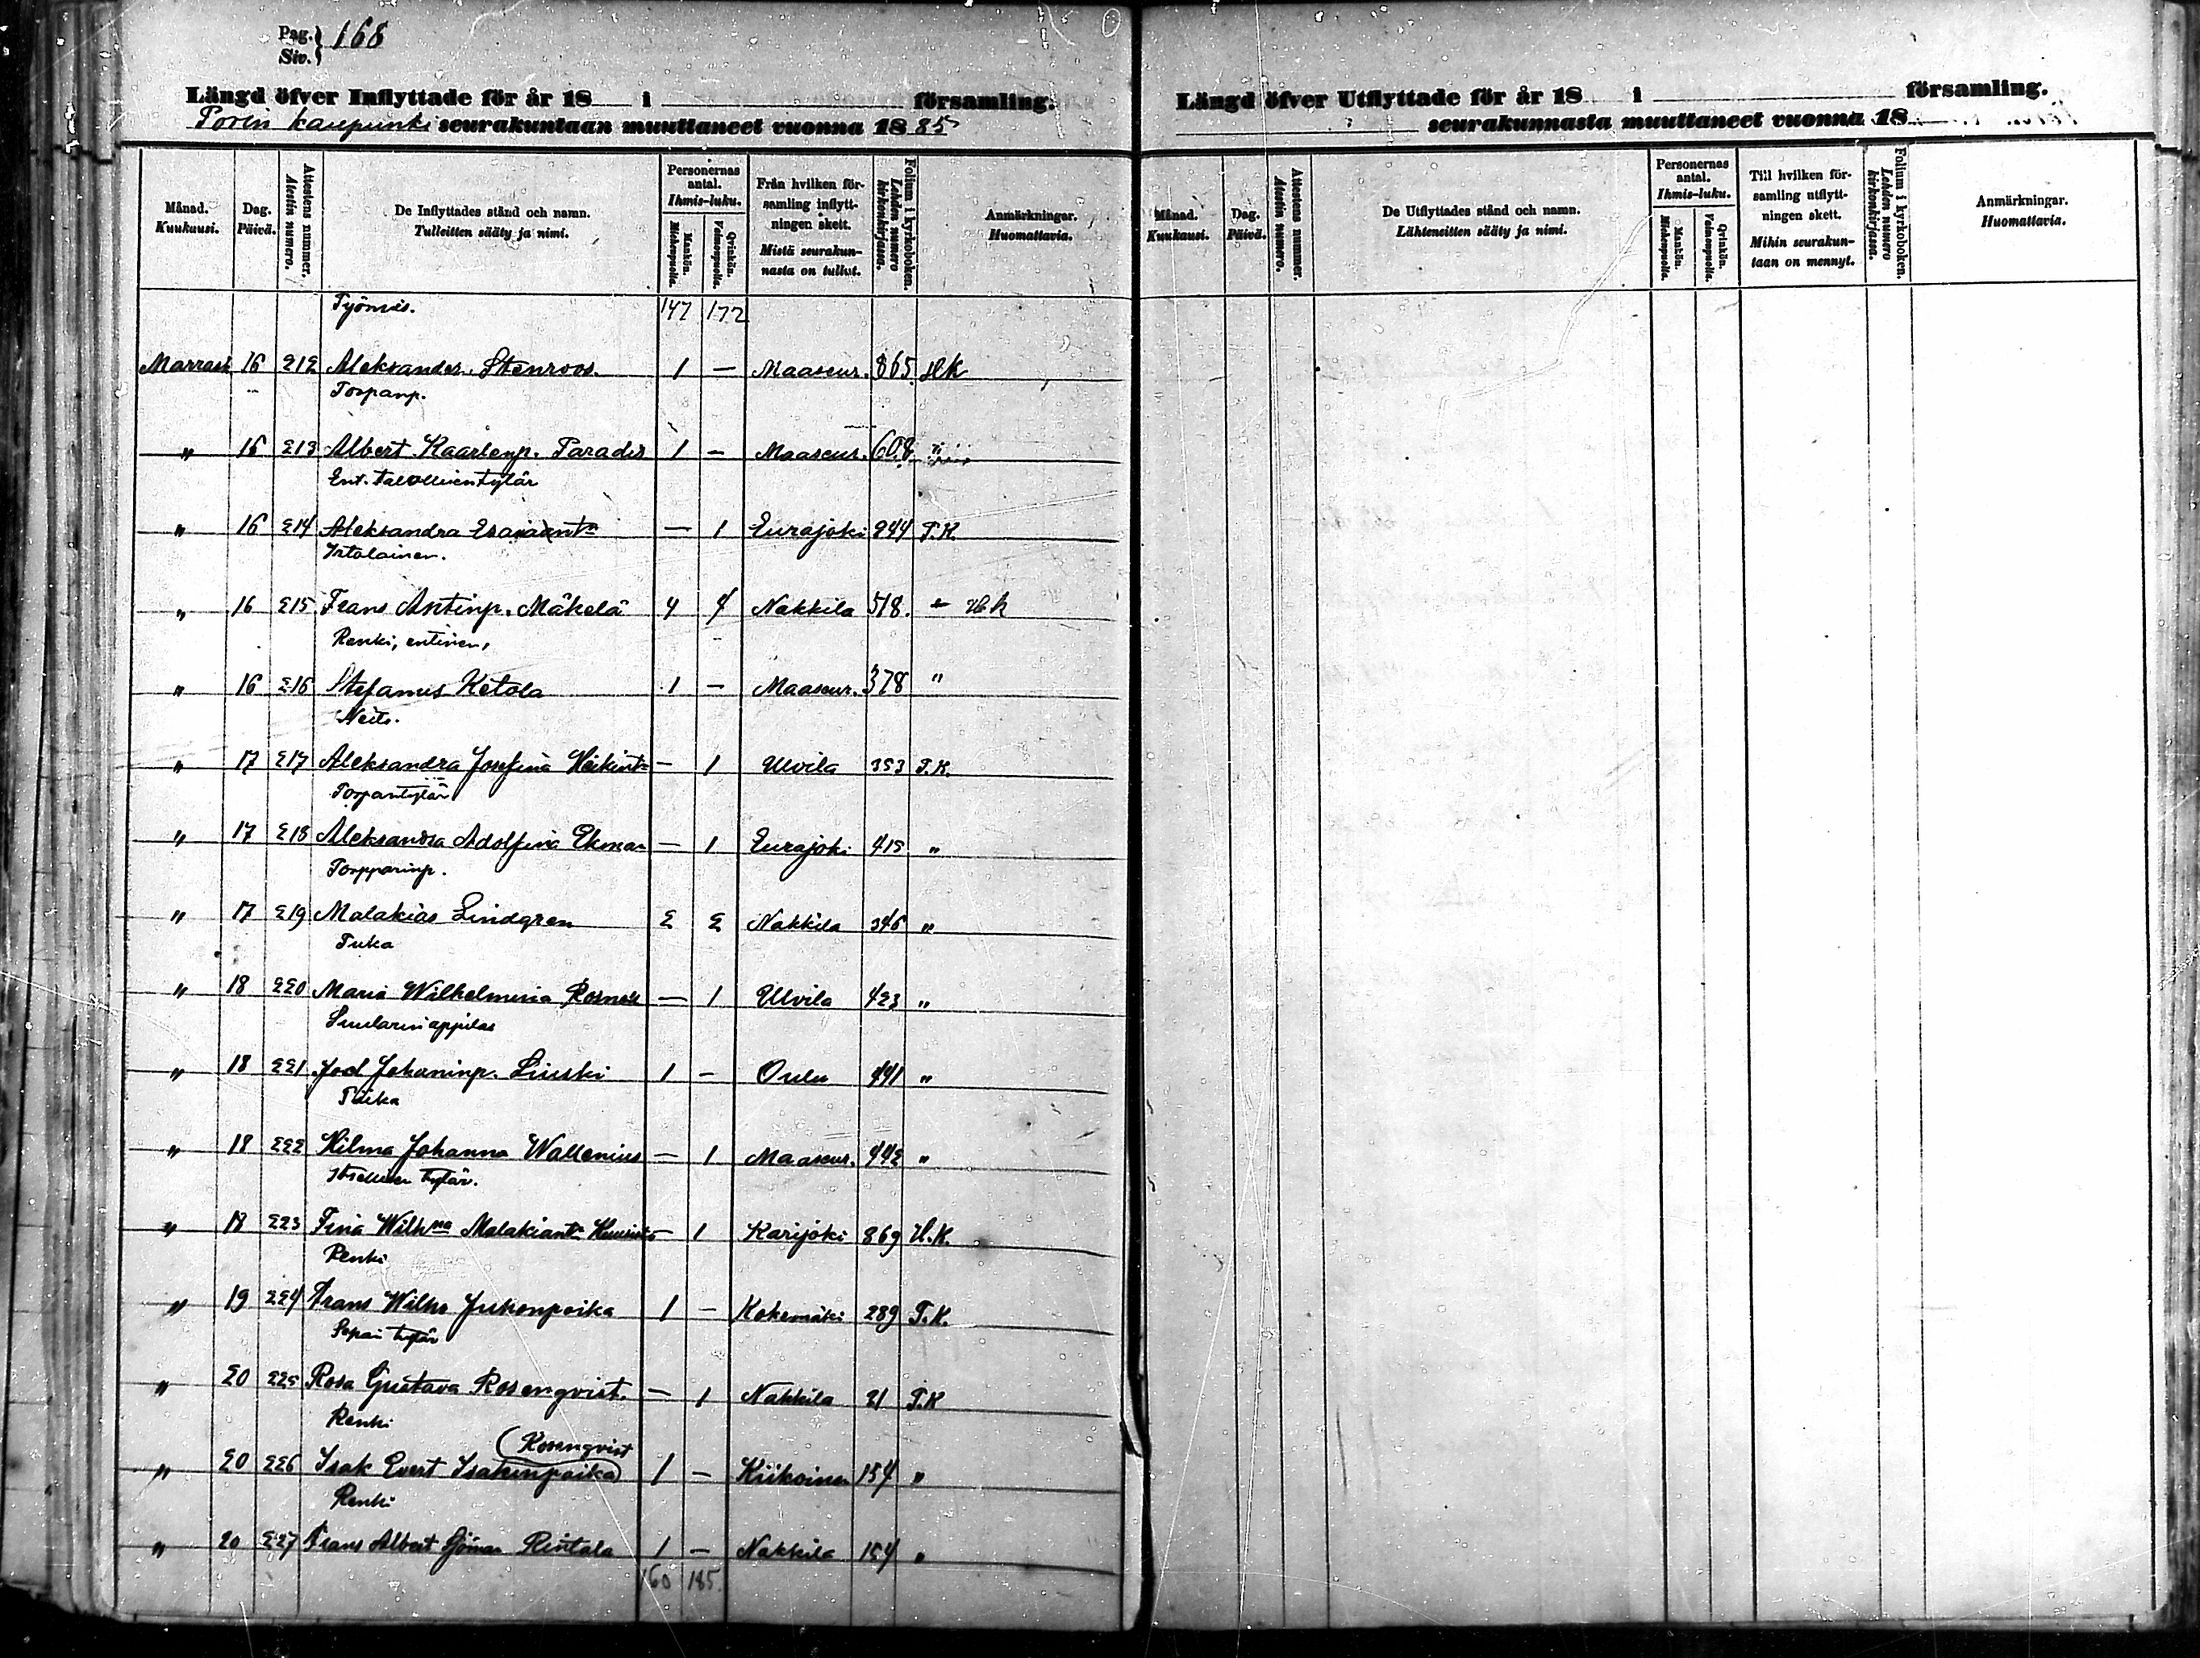 Pag. Siv. } 168
Längd öfver Inflyttade för år 18 i församling.
Porin kaupunki seurakuntaan muuttaneet vuonna 1885
Månad. Kuukausi.
Dag. Päivä.
Attestens nummer. Atestin numero.
De Inflyttades stånd och namn. Tulleitten sääty ja nimi.
Personernas antal. Ihmis-luku.
Mankön. Miehenpuolia.
Qvinkön. Vaimonpuolia.
Från hvilken församling inflyttningen skett. Mistä seurakunnasta on tullut.
Folium i kyrkoboken. Lehden numero kirkonkirjassa.
Anmärkningar. Huomattavia.
Työmis. 147 172
Marrask 16 212 Aleksander Stenroos. 1 — Maaseur. 865 HK
Torpanp.
" 16 213 Albert Kaarlenp. Parades 1 – Maaseur. 608 "
Ent. talollisen tytär
" 16 214 Aleksandra Esaiaant. — 1 Eurajoki 244 T.K.
Irtolainen.
" 16 215 Frans Antinp. Mäkelä 4 4 Nakkila 518. HK
Renki, entinen,
" 16 216 Stefanus Ketola 1 – Maaseur. 378 "
Neits.
" 17 217 Aleksandra Josefina Heikint. – 1 Ulvila 353 T.K.
Torpantytär
" 17 218 Aleksandra Adolfina Ekman – 1 Eurajoki 415 "
Torpparinp.
" 17 219 Malakias Lindgren 2 2 Nakkila 346 "
Piika
" 18 220 Maria Wilhelmina Rosnell — 1 Ulvila 423 "
" 18 221 Joel Johaninp. Liuski 1 – Oulu 441 "
Piika
" 18 222 Hilma Johanna Wallenius — 1 Maaseur. 442 "
Itsellisen tytär.
" 18 223 Fina Wilhna Malakiant. — 1 Karijoki 869 H.K.
Renki
" 19 224 Frans Wilho Juhonpoika 1 – Kokemäki 289 T.K.
Sepän tytär
" 20 225 Rosa Gustava Rosenqvist. — 1 Nakkila 21 T.K
Renki
(Rosenqvist
" 20 226 Isak Evert Isakinpoika) 1 – Kiikoinen 154 "
Renki
" 20 227 Frans Albert Rintala 1 – Nakkila 154 "
160 185.
Längd öfver Utflyttade för år 18 i församling.
seurakunnasta muuttaneet vuonna 18
Månad. Kuukausi.
Dag. Päivä.
Attestens nummer. Atestin numero.
De Utflyttades stånd och namn. Lähteneitten sääty ja nimi.
Personernas antal. Ihmis-luku.
Mankön. Miehenpuolia.
Qvinkön. Vaimonpuolia.
Till hvilken församling utflyttningen skett. Mihin seurakuntaan on mennyt.
Folium i kyrkoboken. Lehden numero kirkonkirjassa.
Anmärkningar. Huomattavia.